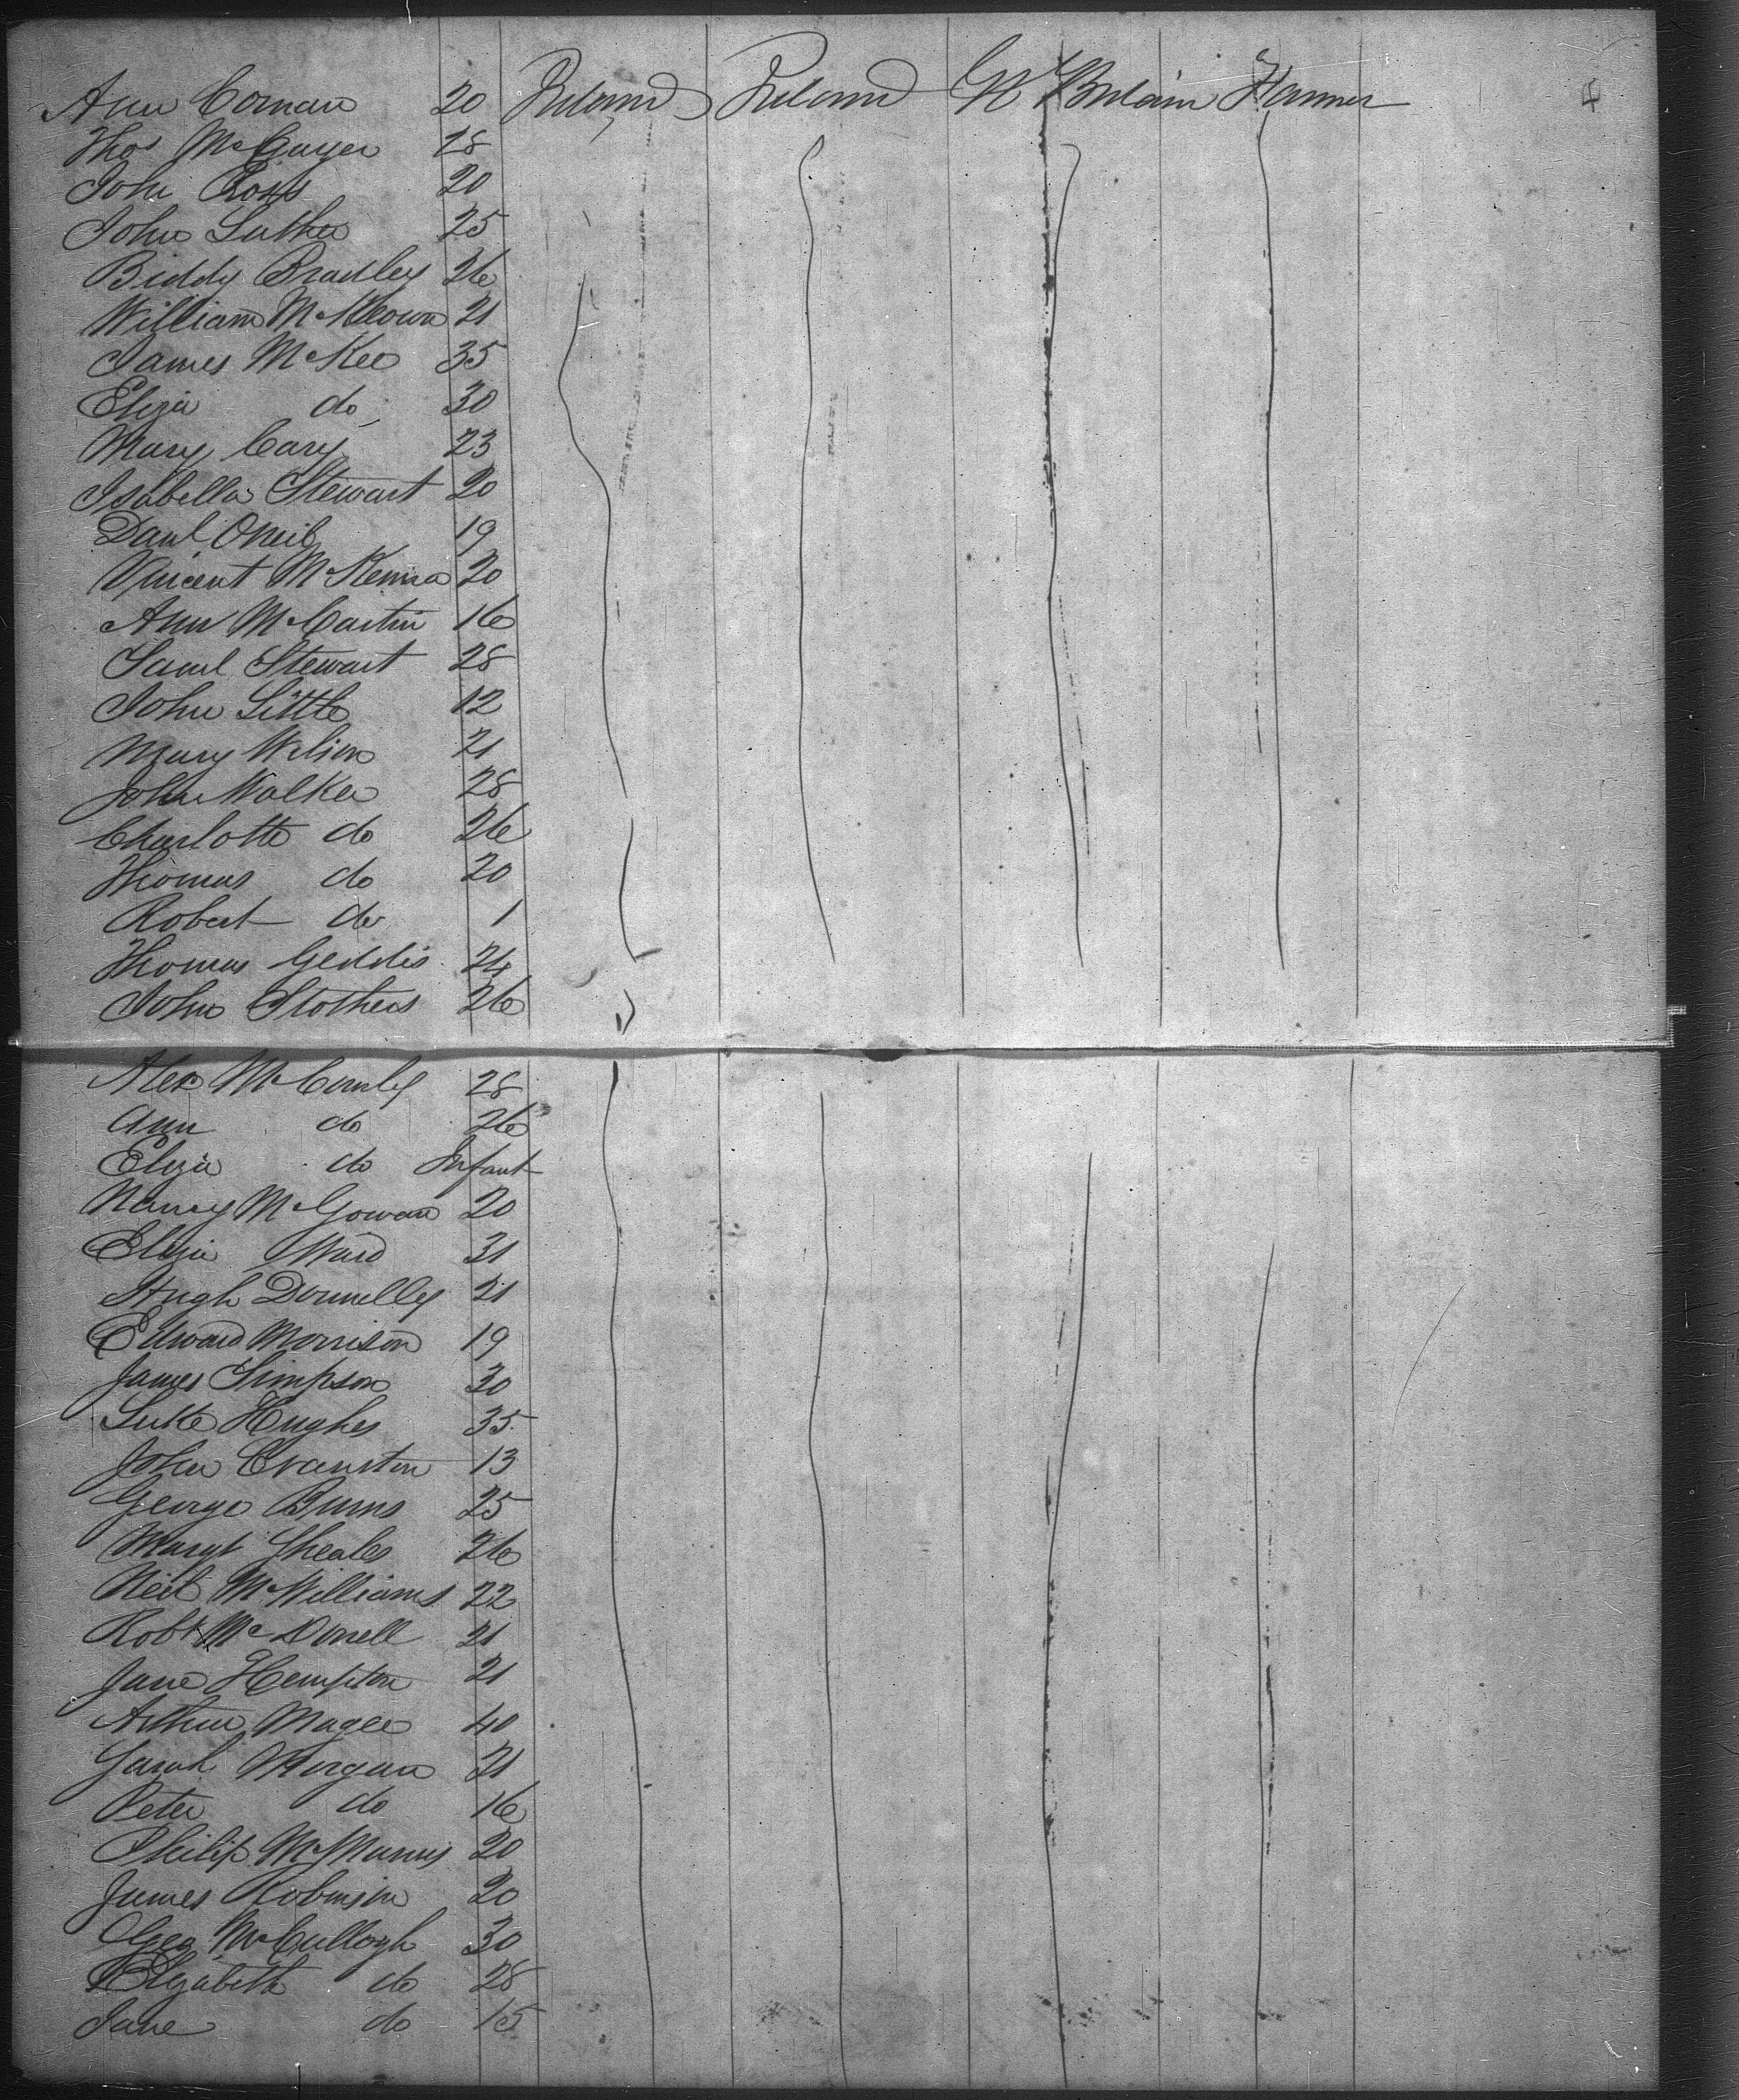 Ann Cornan 20 Ireland Ireland Gt Britain Farmer 4
Thos McGuyer 28
John Ross 20
John Luther 25
Biddy Bradley 26
William McKeown 21
James McKee 35
Eliza do 30
Mary Cary 23
Isabella Stewart 20
Danl ONeil 19
Vincent McKenna 20
Ann McCartin 16
Saml Stewart 28
John Little 12
Mary Wilson 21
John Walker 28
Charlotte do 26
Thomas do 20
Robert do 1
Thomas Geddis 24
John Stothers 26
Alex McComby 28
Ann do 26
Eliza do Infant
Nancy McGowan 20
Eliza Ward 31
Hugh Donnelly 21
Edward Morrison 19
James Simpson 30
Luke Hughes 35
John Cranston 13
George Burns 25
Margt Sheales 26
Neil McWilliams 22
Robt McDonell 21
Jane Hempton 21
Arthur Magee 40
Sarah Morgan 21
Peter do 16
Philip McManus 20
James Robinson 20
Geo McCullogh 30
Elizabeth do 28
Jane do 15